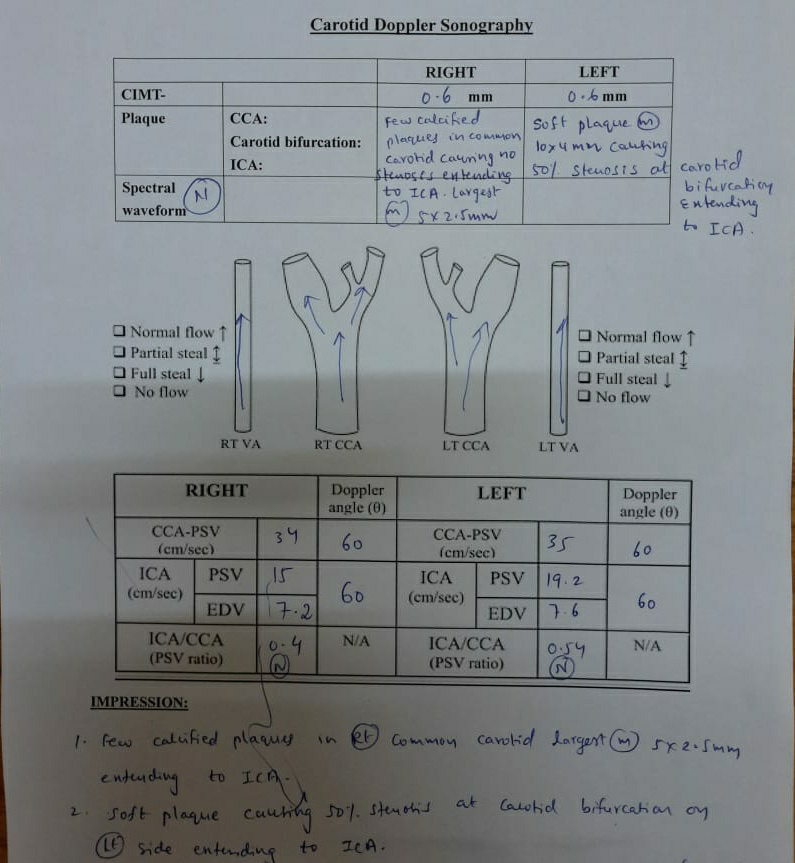 Carotid Doppler Sonography
RIGHT LEFT
CIMT- 0.6 mm 0.6 mm
Plaque CCA:
Carotid bifurcation:
ICA:
Few calcified
plaques in common
carotid causing no
stenoses extending
to ICA. Largest
(m) 5x2.5mm
Soft plaque (m)
10x4mm causing
50% stenosis at carotid
bifurcation
extending
to ICA.
Spectral
waveform (N)
❑ Normal flow ↑
❑ Partial steal ↕
❑ Full steal ↓
❑ No flow
❑ Normal flow ↑
❑ Partial steal ↕
❑ Full steal ↓
❑ No flow
RT VA RT CCA LT CCA LT VA
RIGHT Doppler angle (θ) LEFT Doppler angle (θ)
CCA-PSV (cm/sec) 34 60 CCA-PSV (cm/sec) 35 60
ICA (cm/sec) PSV 15 60 ICA (cm/sec) PSV 19.2 60
EDV 7.2 EDV 7.6
ICA/CCA (PSV ratio) 0.4 (N) N/A ICA/CCA (PSV ratio) 0.54 (N) N/A
IMPRESSION:
1. Few calcified plaques in (Rt) common carotid largest (m) 5x2.5mm
extending to ICA.
2. Soft plaque causing 50% stenosis at carotid bifurcation on
(Lt) side extending to ICA.